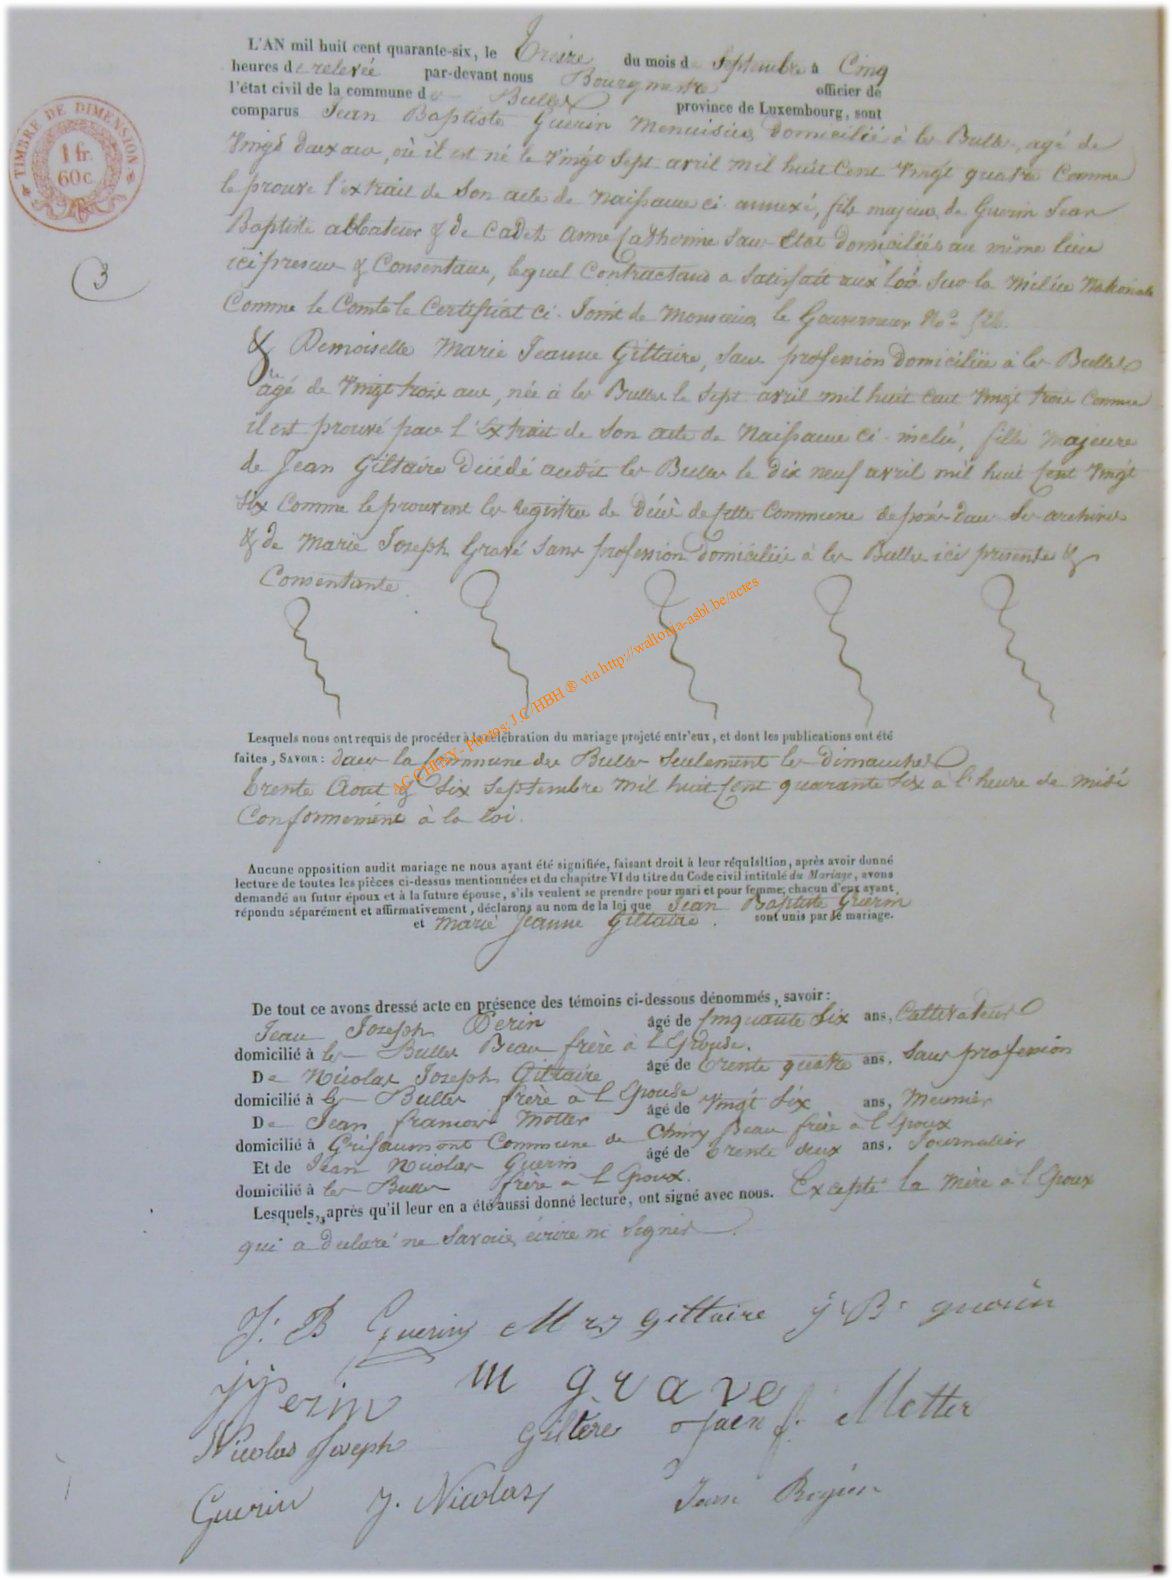 TIMBRE DE DIMENSION
1 fr.
60 c.
3
L'AN mil huit cent quarante-six, le Treize du mois de Septembre à Cinq
heures de relevée par-devant nous Bourgmestre officier de
l'état civil de la commune de Bulles province de Luxembourg, sont
comparus Jean Baptiste Guerin Menuisier, domicilié à les Bulles, agé de
Vingt deux ans, où il est né le Vingt Sept avril mil huit Cent Vingt quatre Comme
le prouve l'extrait de Son acte de Naissance ci annexé, fils majeur de Guerin Jean
Baptiste de Cadet Anne Catherine Sans Etat domiciliés au même lieu
ici présens & Consentans, lequel Contractans a Satisfait aux lois Sur la Milice Nationale
Comme le Constate le Certificat Ci Joint de Monsieur le Gouverneur
& Demoiselle Marie Jeanne Giltaire, Sans profession domiciliée à les Bulles
agée de Vingt trois ans, née à les Bulles le Sept avril mil huit Cent Vingt trois Comme
il est prouvé par l'Extrait de Son acte de Naissance Ci inclu, fille Majeure
de Jean Giltaire Décédé audit les Bulles le dix neuf avril mil huit Cent Vingt
Six Comme le prouvent les Registres de Décès de Cette Commune déposés dans Ses archives
& de Marie Joseph Gravé Sans profession domiciliée à les Bulles ici présente &
Consentante.
AG CHINY - Photos J.C HBH ® via http://wallonia-asbl.be/actes
Lesquels nous ont requis de procéder à la célébration du mariage projeté entr'eux, et dont les publications ont été
faites, SAVOIR: dans la Commune des Bulles Seulement les Dimanches
Trente Aout & Six Septembre mil huit Cent quarante Six à l'heure de midi
Conformément à la loi.
Aucune opposition audit mariage ne nous ayant été signifiée, faisant droit à leur réquisition, après avoir donné
lecture de toutes les pièces ci-dessus mentionnées et du chapitre VI du titre du Code civil intitulé du Mariage, avons
demandé au futur époux et à la future épouse, s'ils veulent se prendre pour mari et pour femme; chacun d'eux ayant
répondu séparément et affirmativement, déclarons au nom de la loi que Jean Baptiste Guerin
et Marie Jeanne Giltaire. sont unis par le mariage.
De tout ce avons dressé acte en présence des témoins ci-dessous dénommés, savoir:
Jean Joseph Perin âgé de Cinquante Six ans, Cultivateur
domicilié à les Bulles Beau frère à l'Epouse.
De Nicolas Joseph Giltaire âgé de Trente quatre ans, Sans profession
domicilié à les Bulles frère à l'Epouse
De Jean françois Motter âgé de Vingt Six ans, Meunier
domicilié à Grisaumont Commune de Chiny Beau frère à l'Epoux
Et de Jean Nicolas Guerin âgé de Trente deux ans, Journalier
domicilié à les Bulles frère à l'Epoux.
Lesquels, après qu'il leur en a été aussi donné lecture, ont signé avec nous. Excepté la Mère à l'Epoux
qui a declaré ne Savoir écrire ni Signer.
J. B Guerin M J Giltaire J. B. guerin
JJ Perin m grave
Nicolas Joseph Giltère Jaen f. Motter
Guerin J. Nicolas Jean